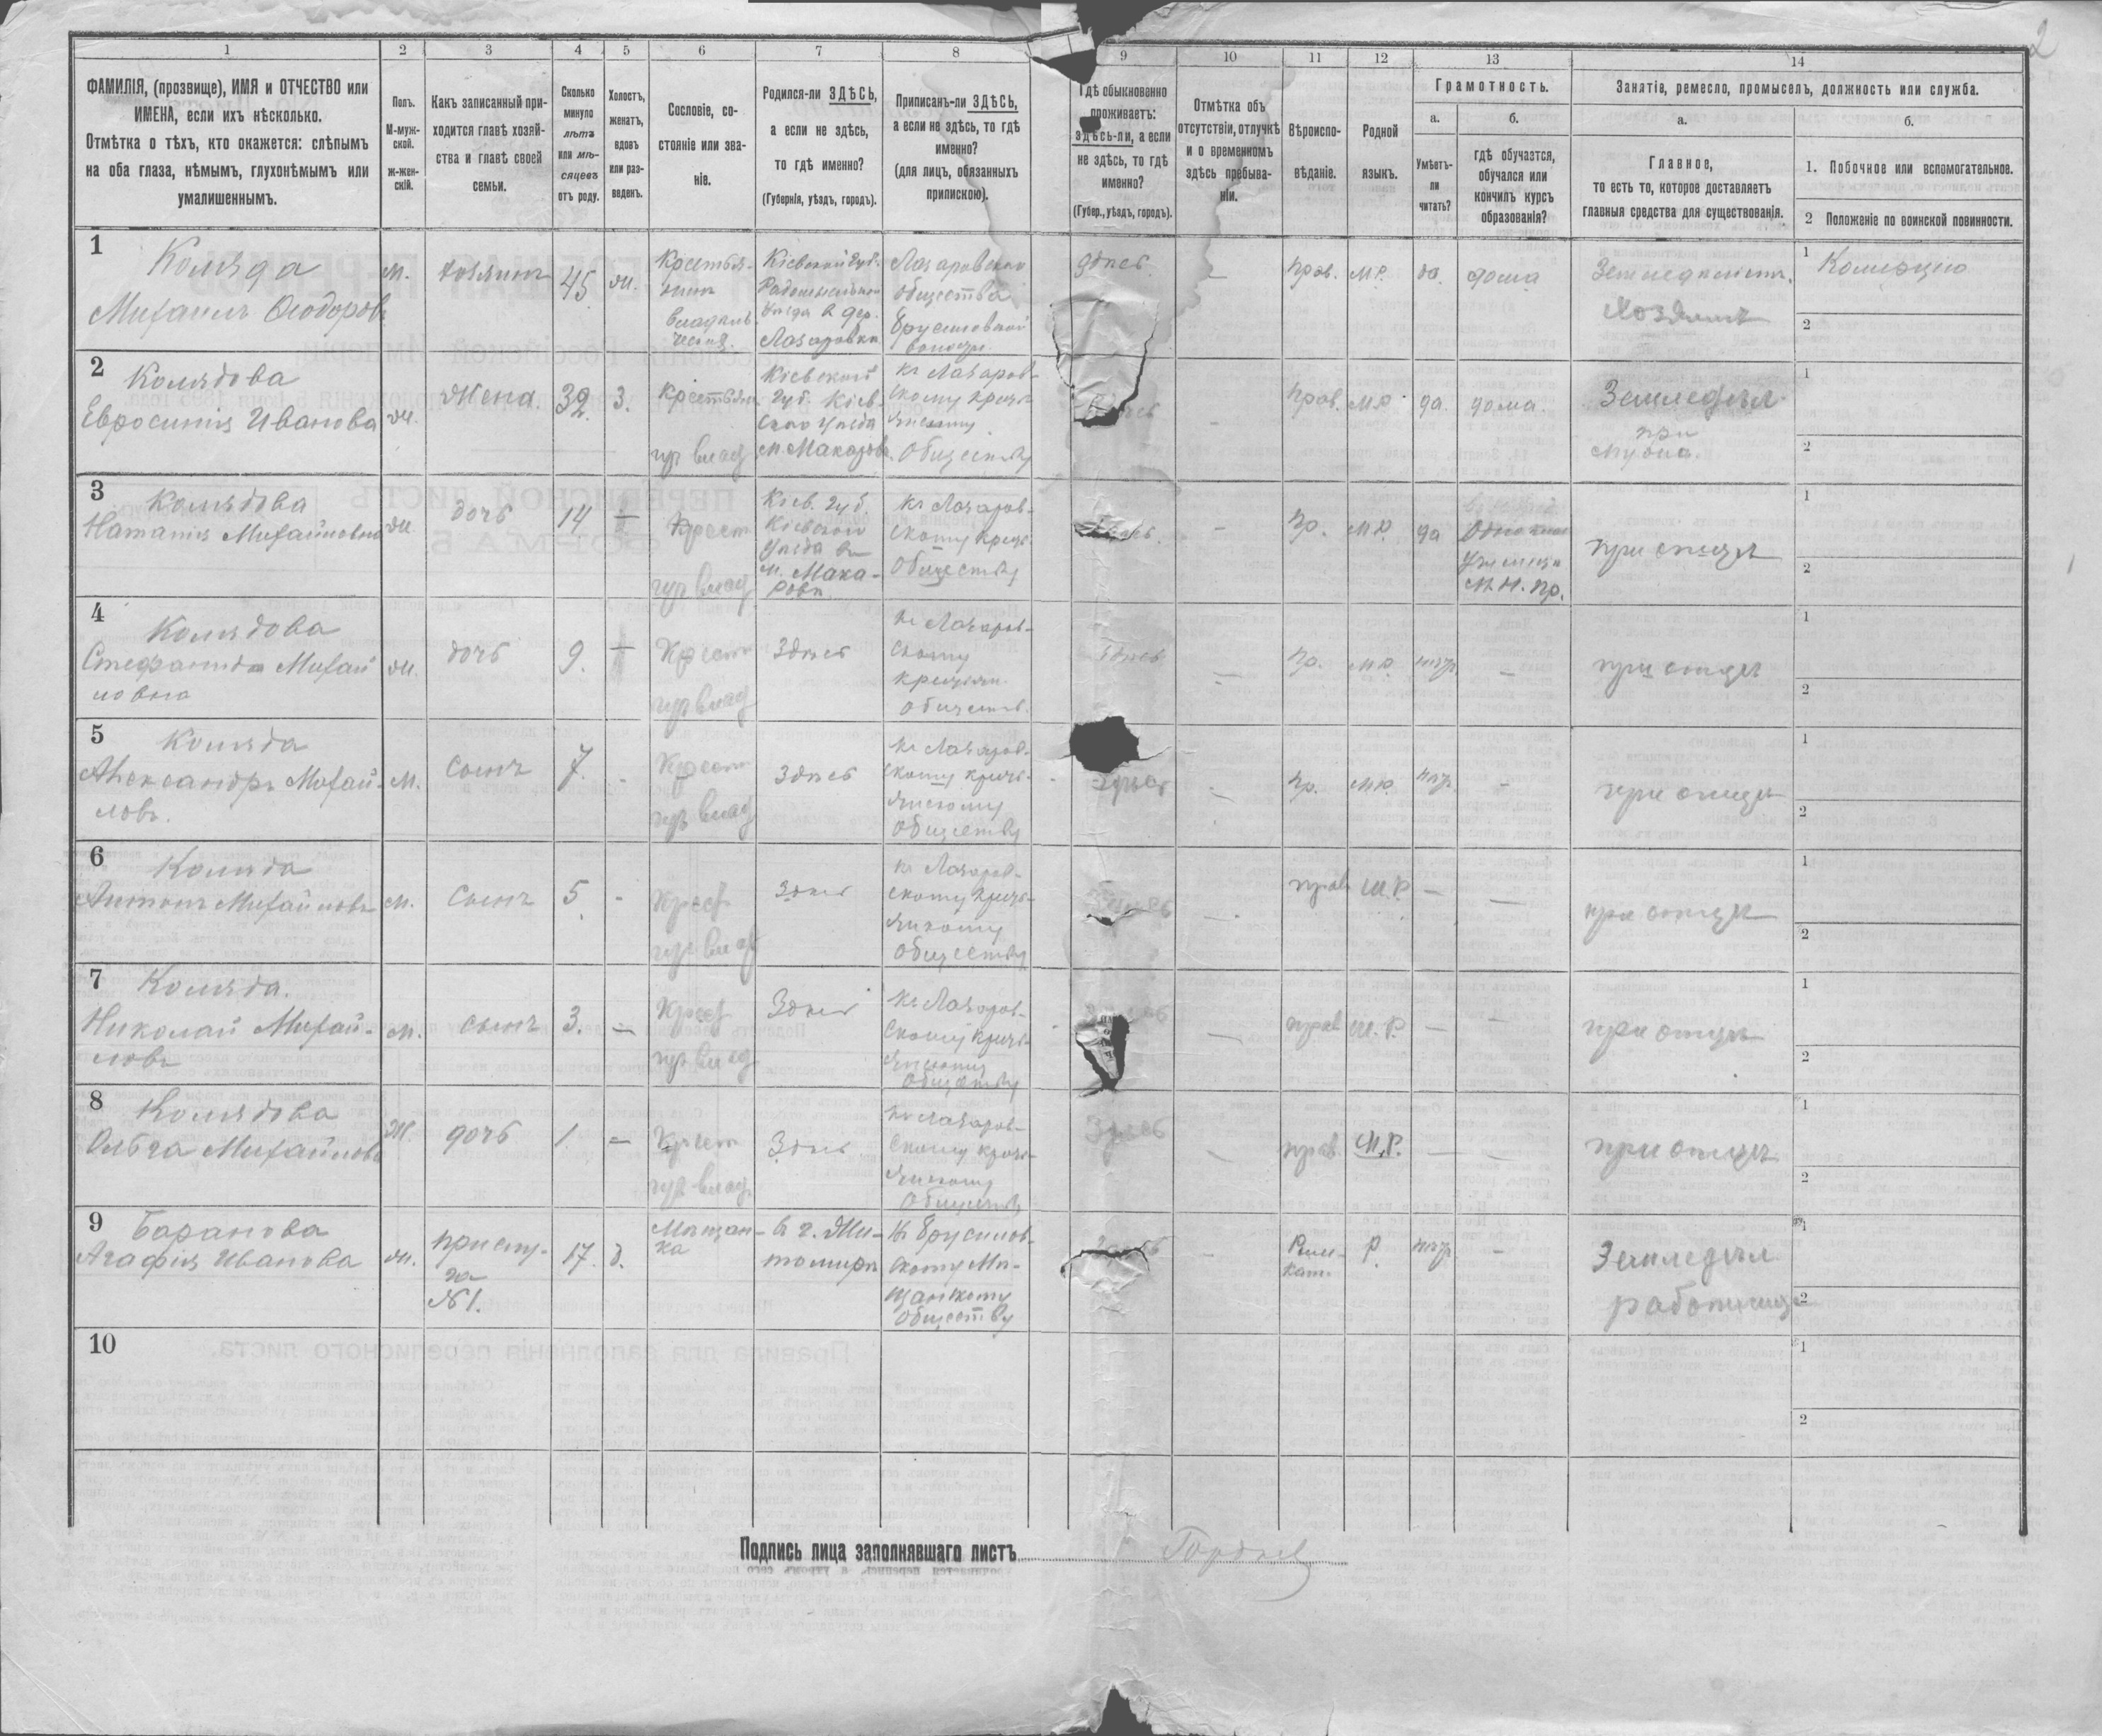 2
1 2 3 4 5 6 7 8 9 10 11 12 13 14
ФАМИЛІЯ, (прозвище), ИМЯ и ОТЧЕСТВО или
ИМЕНА, если ихъ нѣсколько.
Отмѣтка о тѣхъ, кто окажется: слѣпымъ
на оба глаза, нѣмымъ, глухонѣмымъ или
умалишеннымъ.
Полъ.
М-муж-
ской.
ж-жен-
скій.
Какъ записанный при-
ходится главѣ хозяй-
ства и главѣ своей
семьи.
Сколько
минуло
лѣтъ
или мѣ-
сяцевъ
отъ роду.
Холостъ,
женатъ,
вдовъ
или раз-
веденъ.
Сословіе, со-
стояніе или зва-
ніе.
Родился-ли ЗДѢСЬ,
а если не здѣсь,
то гдѣ именно?
(Губернія, уѣздъ, городъ).
Приписанъ-ли ЗДѢСЬ,
а если не здѣсь, то гдѣ
именно?
(для лицъ, обязанныхъ
припискою).
Гдѣ обыкновенно
проживаетъ:
ЗДѢСЬ-ли, а если
не здѣсь, то гдѣ
именно?
(Губер., уѣздъ, городъ).
Отмѣтка объ
отсутствіи, отлучкѣ
и о временномъ
здѣсь пребыва-
ніи.
Вѣроиспо-
вѣданіе.
Родной
языкъ.
Грамотность.
а.
Умѣетъ-
ли
читать?
б.
гдѣ обучается,
обучался или
кончилъ курсъ
образованія?
Занятія, ремесло, промыселъ, должность или служба.
а.
Главное,
то есть то, которое доставляетъ
главныя средства для существованія.
б.
1. Побочное или вспомогательное.
2 Положеніе по воинской повинности.
1
Коляда
Михаилъ Ѳеодоровъ
м.
хозяинъ
45
ж.
Крестья-
нинъ
владѣль-
ческ.
Кіевской губ.
Радомысльскаго
Уѣзда въ дер.
Лазаровкѣ
Лазаровского
общества
Брусиловской
волости.
здѣсь
-
прав.
М.Р.
да.
дома
Земледѣлецъ.
Хозяинъ
1
2
2
Колядова
Евросинія Иванова
ж.
Жена.
32.
з.
Крестьян.
Кіевской
губ. Кіев-
ского уѣзда
м. Макаровъ.
къ Лазаров-
скому кресть-
янскому
обществу
-
прав.
М.Р.
да.
дома.
Земледѣл.
при
мужѣ.
1
2
3
Колядова
Наталія Михайловна
ж.
дочь
14
-
Крест
Кіев. губ.
Кіевского
уѣзда въ
м. Мака-
ровѣ.
къ Лазаров-
скому крест.
обществу
-
пр.
М.Р.
да
М.Н.Пр.
при отцѣ
1
2
4
Колядова
Стефанида Михай
ловна
ж.
дочь
9.
-
Крест
Здѣсь
къ Лазаров-
скому
крестьян.
обществ.
Здѣсь
-
пр.
М.Р.
негр.
-
при отцѣ
1
2
5
Коляда
Александръ Михай-
ловъ.
м.
сынъ
7.
-
Крест
Здѣсь
къ Лазаров-
скому кресть-
янскому
обществу
Здѣсь
-
пр.
М.Р.
негр.
-
при отцѣ
1
2
6
Коляда
Антонъ Михайловъ
м.
сынъ
5
-
Крест
Здѣсь
къ Лазаров-
скому кресть-
янскому
обществу
-
прав
М.Р.
-
-
при отцѣ
1
2
7
Коляда.
Николай Михай-
ловъ
м.
сынъ
3.
-
Крест
Здѣсь
къ Лазаров-
скому кресть-
янскому
обществу
-
прав
М.Р.
-
-
при отцѣ
1
2
8
Колядова
Ольга Михайлова
ж.
дочь
1.
-
Крест
Здѣсь
къ Лазаров-
скому кресть-
янскому
обществу
Здѣсь
-
прав.
М.Р.
-
-
при отцѣ
1
2
9
Баранова
Агафія Иванова
ж.
прислу-
га
№1.
17.
д.
Мѣщан-
ка
въ г. Жи-
томирѣ
къ Брусилов-
скому Мѣ-
щанскому
обществу
-
Рим-
кат.
Р.
негр.
-
Земледѣл.
работница
1
2
10
1
2
Подпись лица заполнявшаго листъ